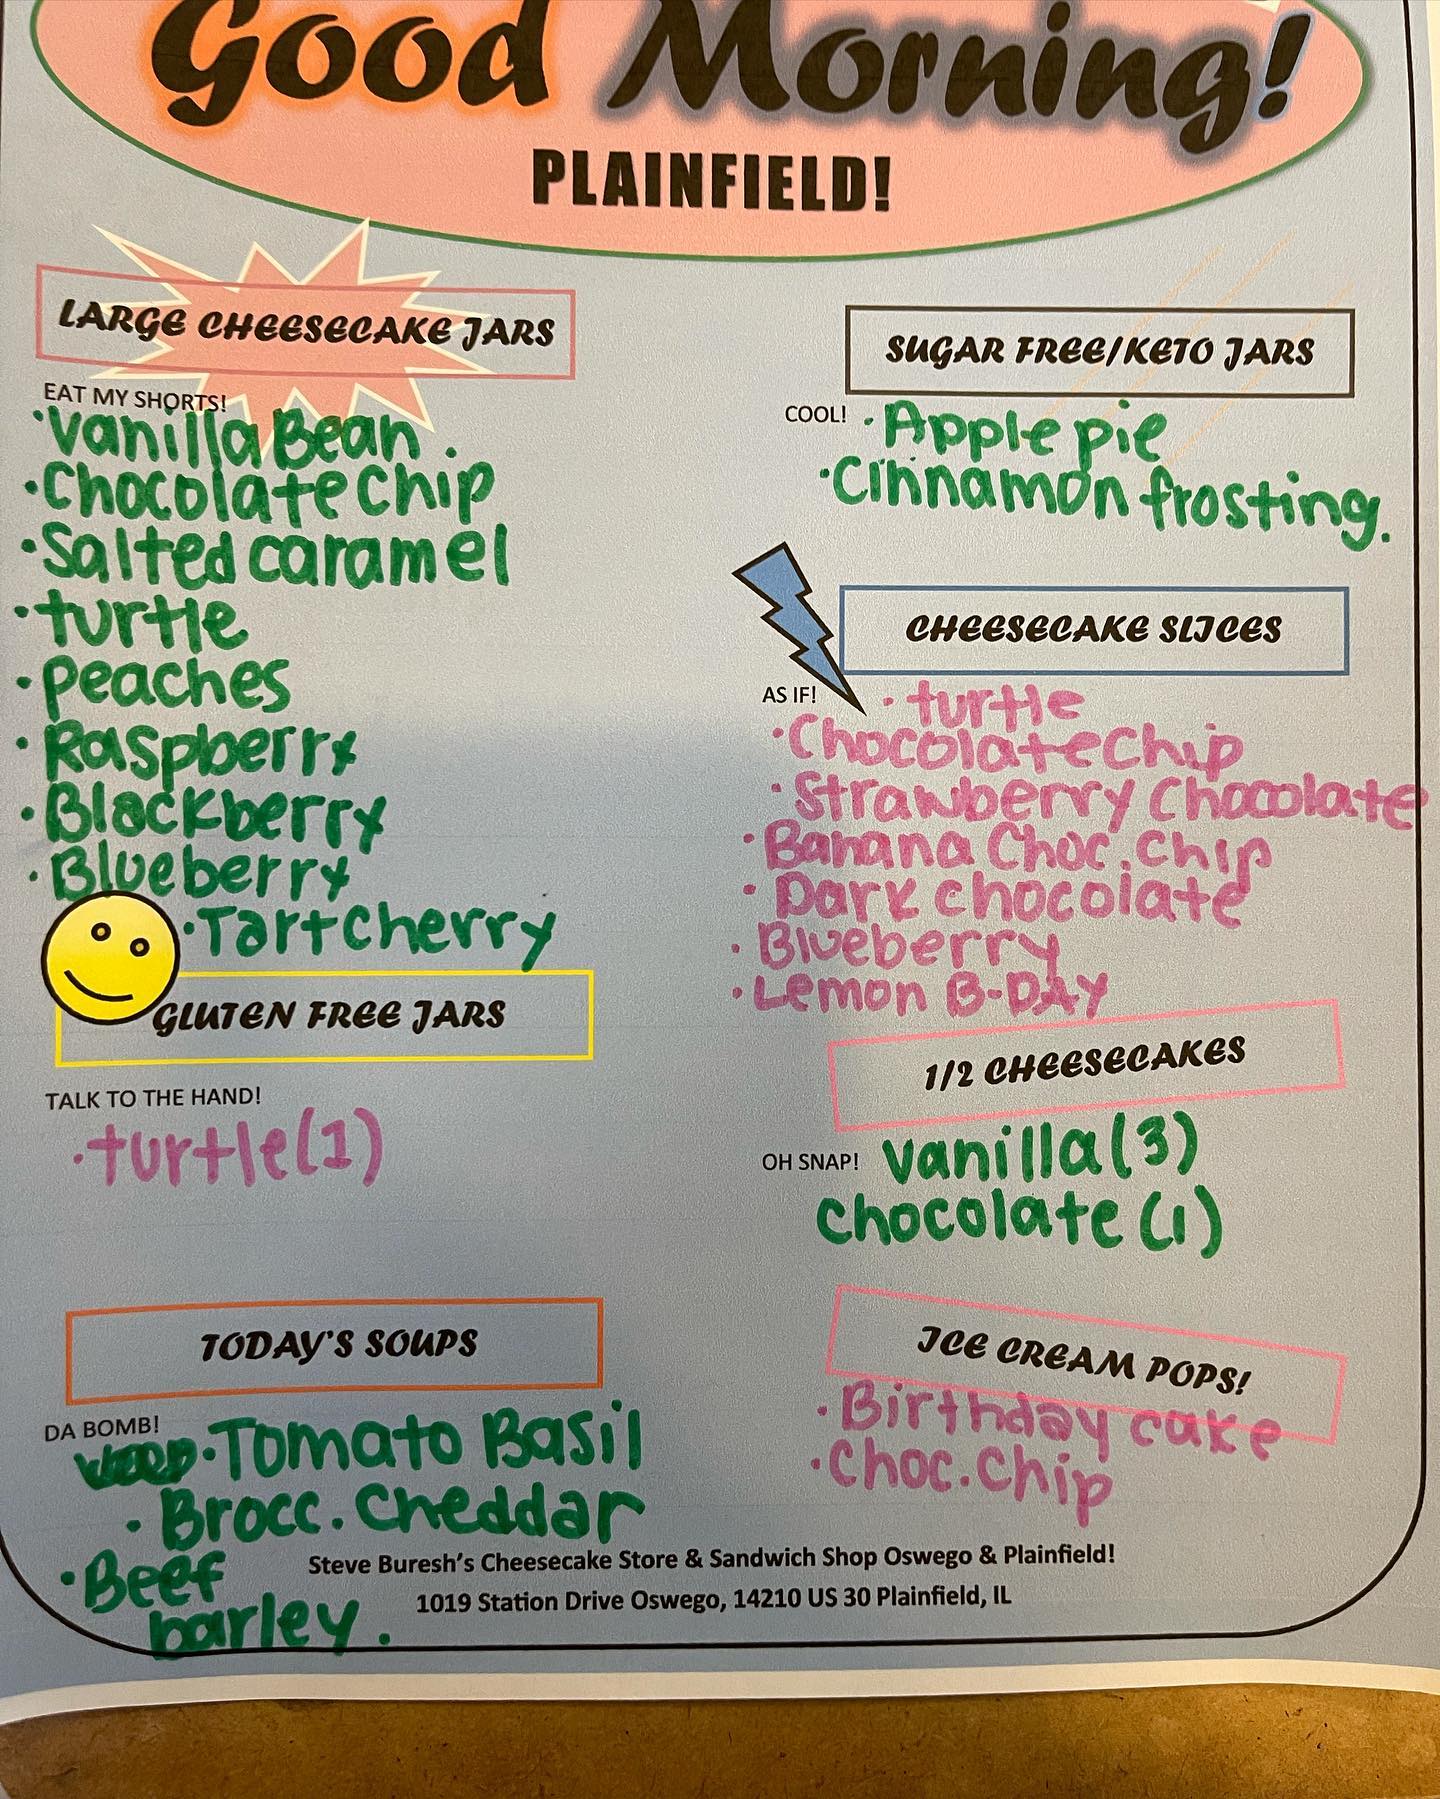 Good Morning!
PLAINFIELD!
LARGE CHEESECAKE JARS
EAT MY SHORTS!
·Vanilla Bean.
·Chocolate chip
·Salted caramel
·turtle
·peaches
·Raspberry
·Blackberry
·Blueberry
·Tart Cherry
GLUTEN FREE JARS
TALK TO THE HAND!
·turtle (1)
TODAY'S SOUPS
DA BOMB!
·Tomato Basil
·Brocc. Cheddar
·Beef
barley.
SUGAR FREE/KETO JARS
COOL! ·Apple pie
·Cinnamon frosting.
CHEESECAKE SLICES
AS IF! ·turtle
·Chocolate Chip
·Strawberry Chocolate
·Banana Choc. Chip
·Dark chocolate
·Blueberry
·Lemon B-DAY
1/2 CHEESECAKES
OH SNAP! Vanilla (3)
Chocolate (1)
ICE CREAM POPS!
·Birthday cake
·Choc. Chip
Steve Buresh's Cheesecake Store & Sandwich Shop Oswego & Plainfield!
1019 Station Drive Oswego, 14210 US 30 Plainfield, IL